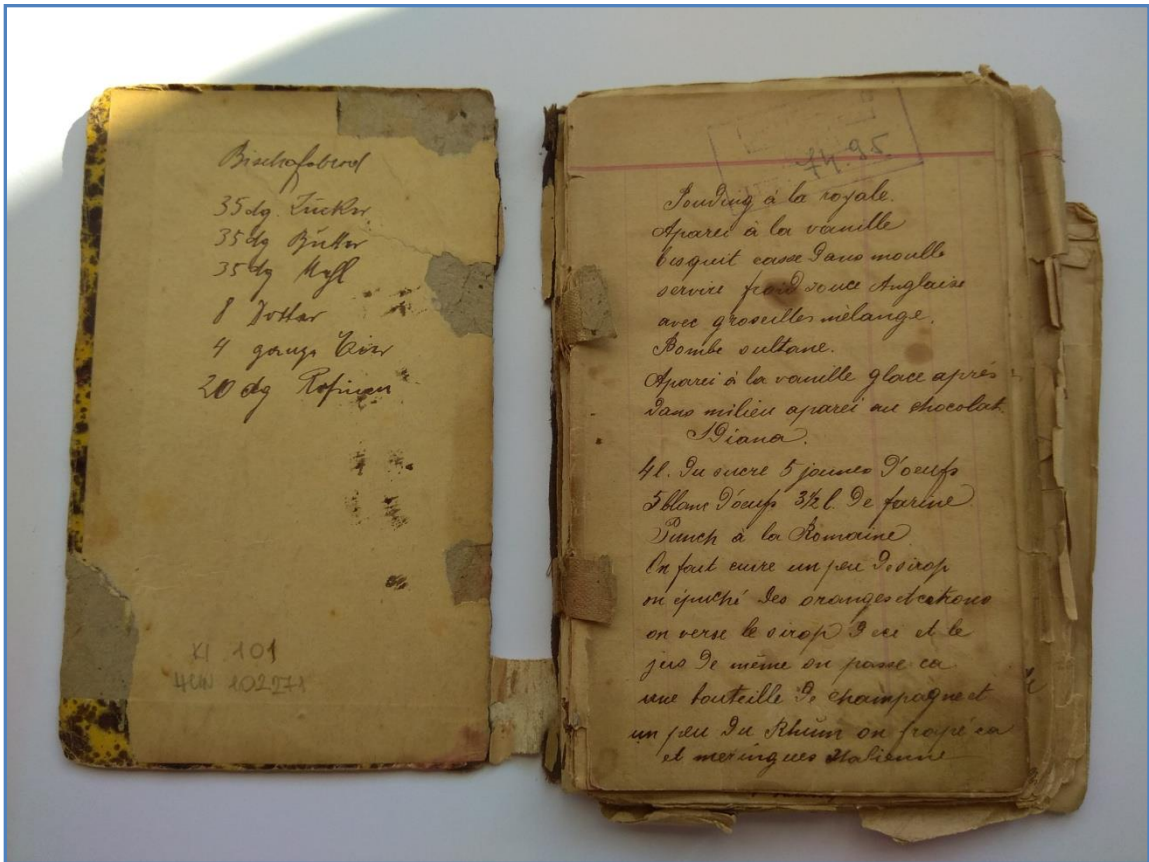 Bischofsbrod
35 dg. Zucker
35 dg Butter
35 dg Mehl
8 Dotter
4 ganze Eier
20 dg Rosinen
XI 101
102271
74.95
Pouding à la royale.
Aparei à la vanille
bisquit casse dans moulle
servire froid souce Anglaise
avec groseilles mélange.
Bombe sultane.
Aparei à la vanille glace aprés
dans milieu aparei au chocolat.
Diana.
4 l. du sucre 5 jaunes d'oeufs
5 blanc d'oeufs 3½ l. de farine
Punch à la Romaine
On fait cuire un peu de sirop
on épuché des oranges et citrons
on verse le sirop et le
jus de même on passe ca
une bouteille de champagne et
un peu du Rhum on frapé ca
et meringues Italienne